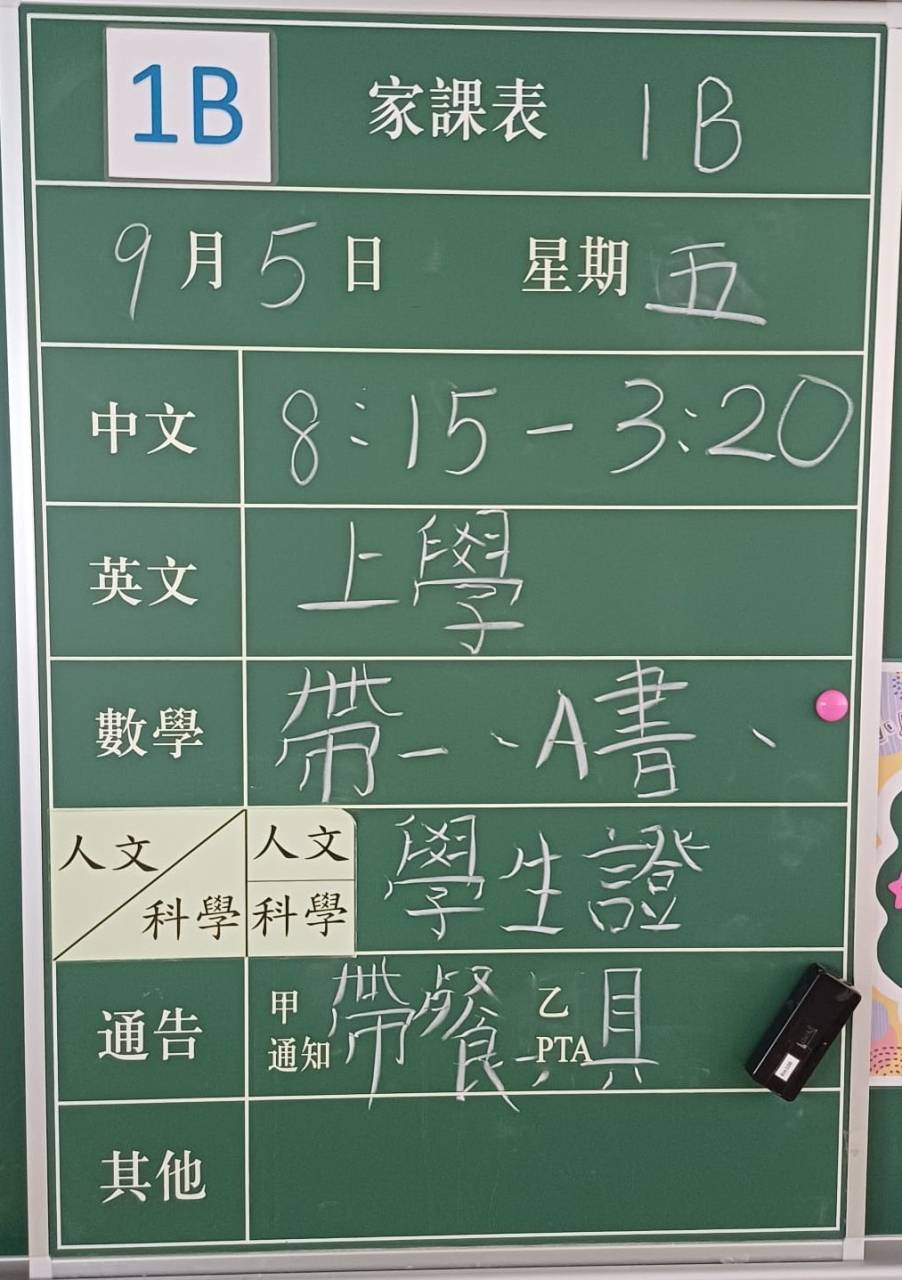 1B 家課表 1B
9月5日 星期五
中文 8:15-3:20
英文 上學
數學 帶一、A書、
人文 人文 學生證
科學 科學
通告 甲 通知 帶餐具 乙 PTA
其他